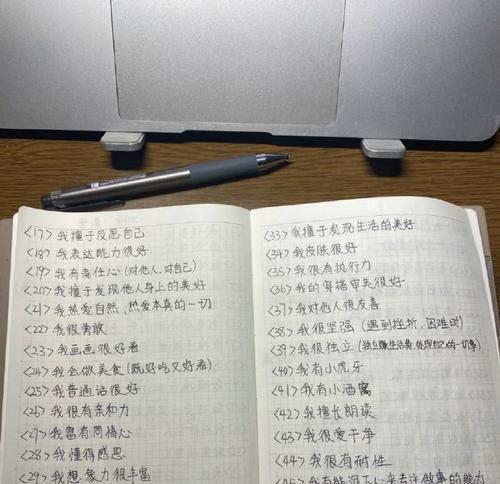 <17> 我擅于反思自己
<18> 我表达能力很好
<19> 我有责任心(对他人,对自己)
<20> 我擅于发现他人身上的美好
<21> 我热爱自然,热爱本真的一切
<22> 我很勇敢
<23> 我画画很好看
<24> 我会做美食(既好吃又好看)
<25> 我普通话很好
<26> 我很有亲和力
<27> 我富有同情心
<28> 我懂得感恩
<29> 我想象力很丰富
<33> 我擅于发现生活的美好
<34> 我皮肤很好
<35> 我很有执行力
<36> 我的穿搭审美很好
<37> 我对他人很友善
<38> 我很坚强(遇到挫折,困难时)
<39> 我很独立(独立赚生活费,处理自己的一切事)
<40> 我有小虎牙
<41> 我有小酒窝
<42> 我擅长朗读
<43> 我很爱干净
<44> 我很有耐性
<45> 我有能沉下心来专注做事的能力